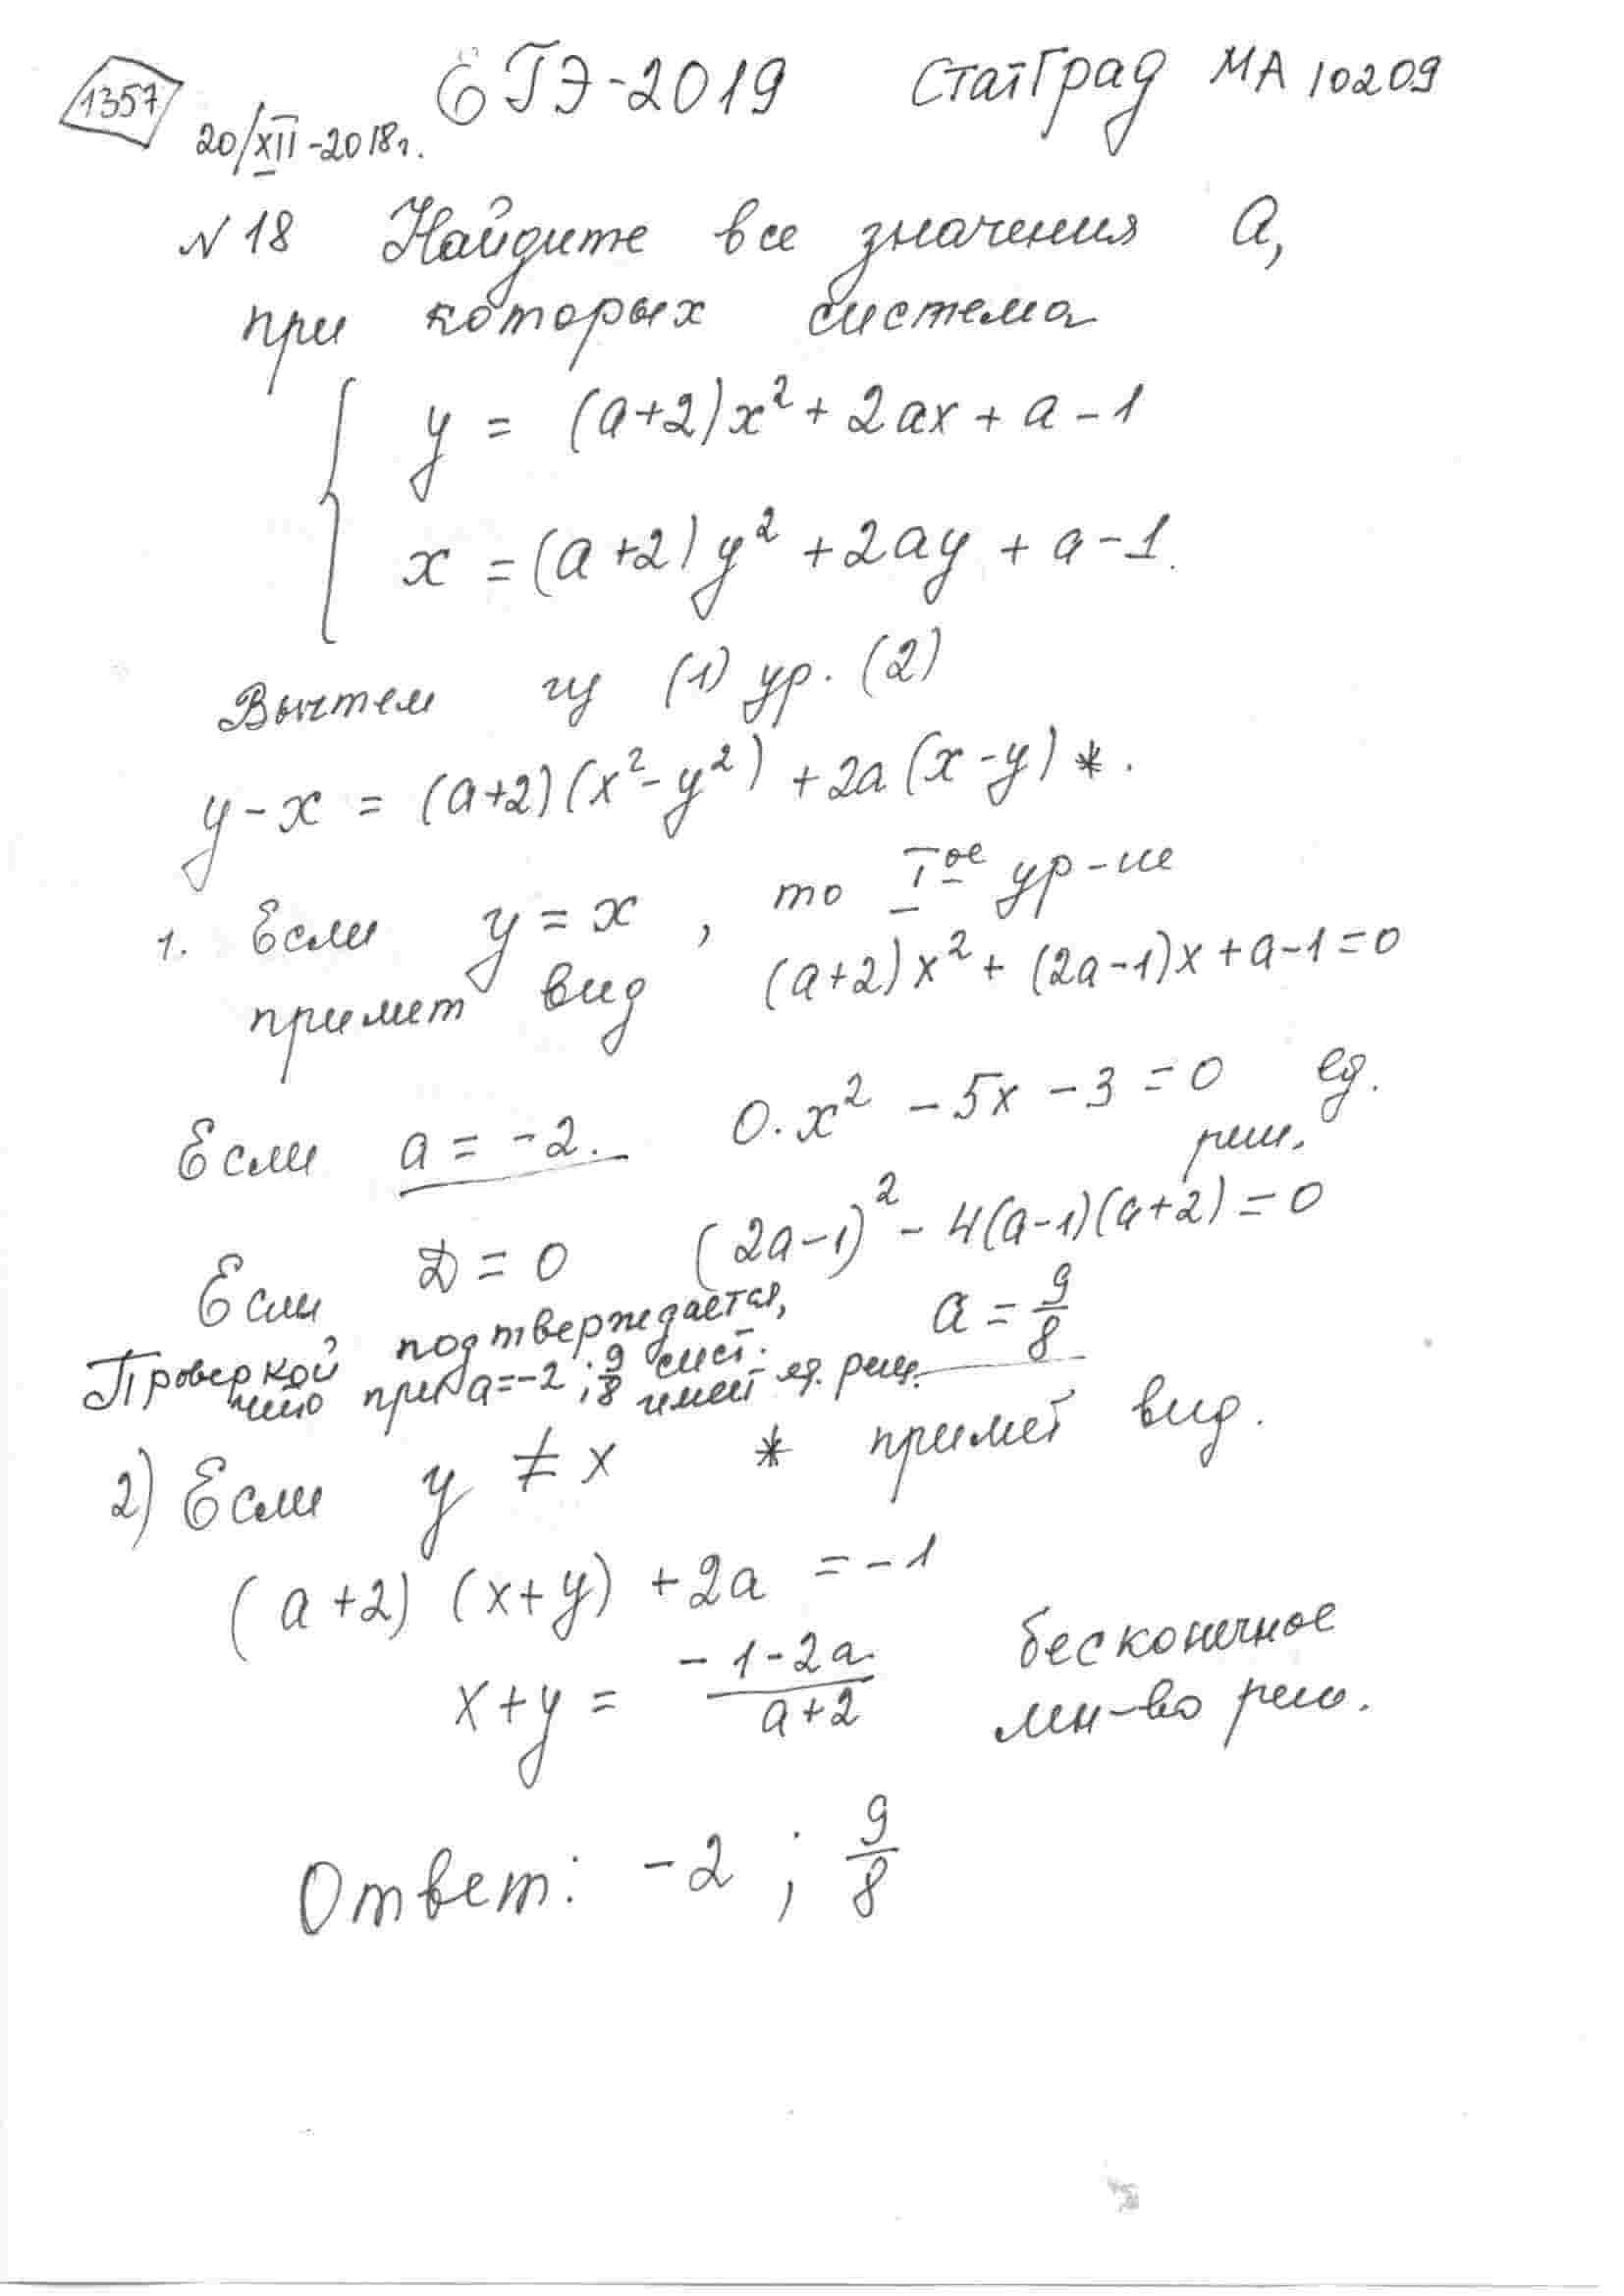 1357
ЕГЭ-2019 СтатГрад МА 10209
20/XII-2018г.
N 18 Найдите все значения а,
при которых система
y = (a+2)x² + 2ax + a - 1
x = (a+2)y² + 2ay + a - 1.
Вычтем из (1) ур. (2)
y - x = (a+2)(x² - y²) + 2a(x - y) *.
1. Если y = x, то Iое ур-ие
примет вид (a+2)x² + (2a-1)x + a - 1 = 0
Если a = -2. 0·x² - 5x - 3 = 0 ед.
реш.
Если D = 0 (2a-1)² - 4(a-1)(a+2) = 0
Проверкой подтверждается, a = 9/8
что при a = -2; 9/8 сист. имеет ед. реш.
2) Если y ≠ x * примет вид.
(a+2)(x+y) + 2a = -1
x+y = (-1-2a)/(a+2) бесконечное
мн-во реш.
Ответ: -2; 9/8